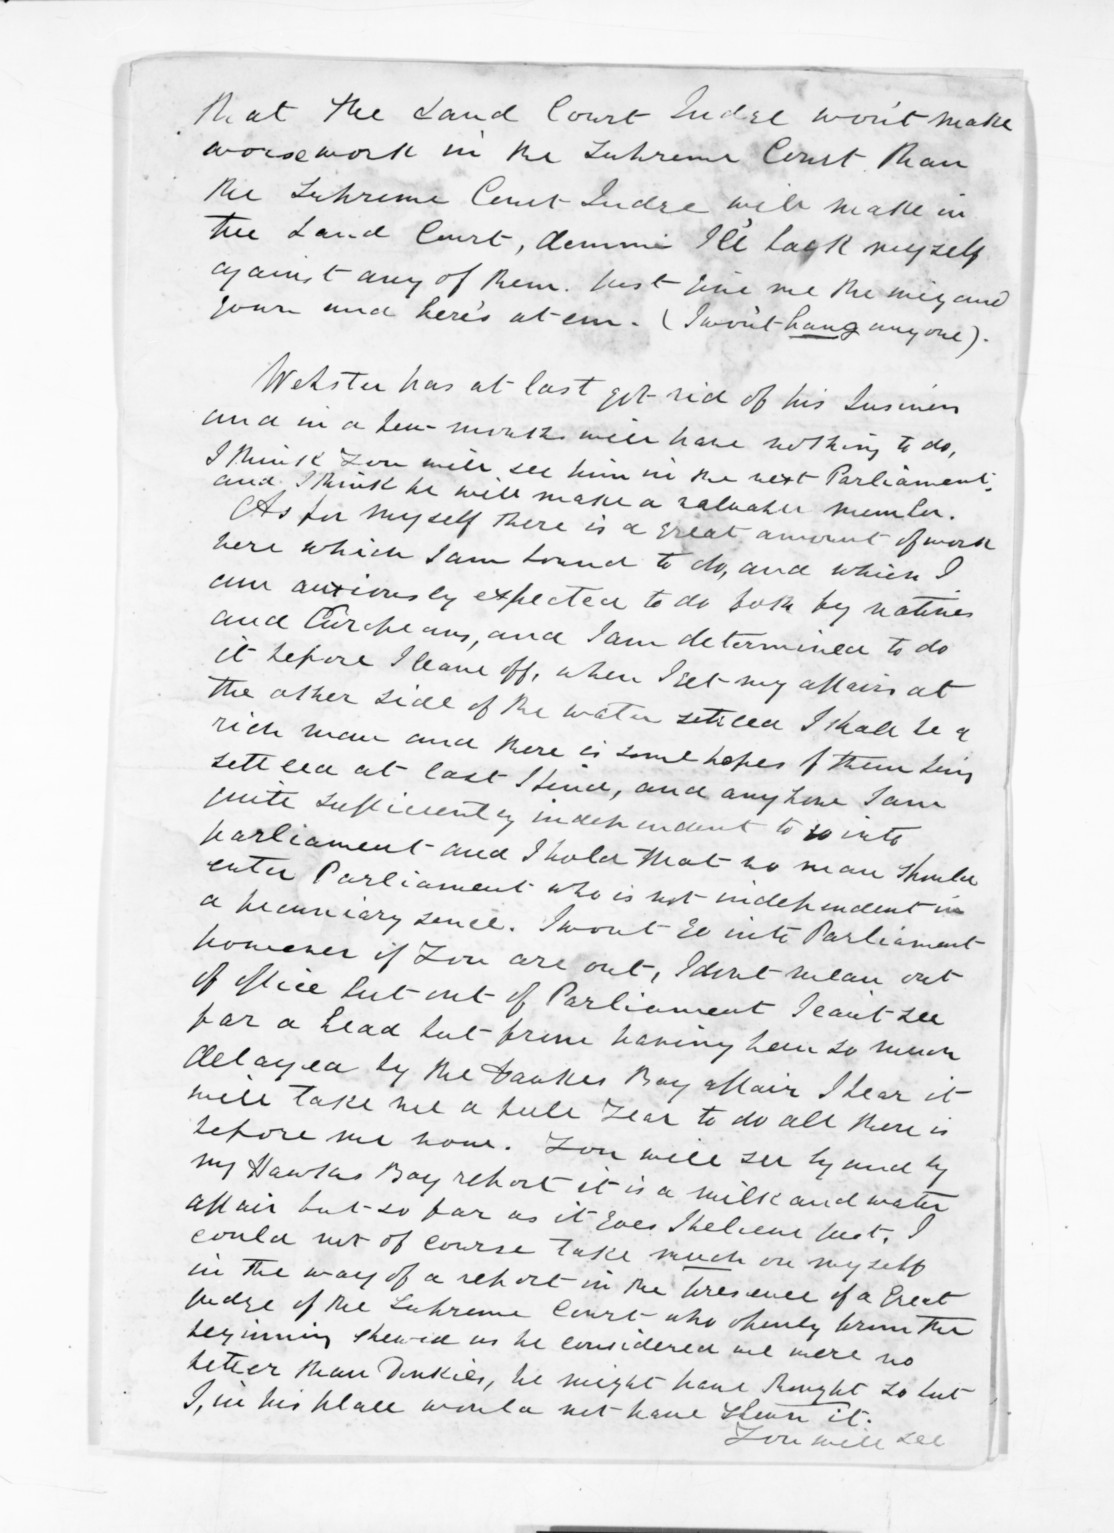 that the Land Court Judge won't make
worse work in the Supreme Court than
the Supreme Court Judge will make in
the Land Court, demmi I'll back myself
against any of them. Just give me the wig and
gown and here's at em. (I won't hang anyone).
Webster has at last got rid of his business
and in a few months will have nothing to do,
I think you will see him in the next Parliament,
and I think he will make a valuable member.
As for myself there is a great amount of work
here which I am bound to do, and which I
am anxiously expected to do both by natives
and Europeans, and I am determined to do
it before I leave off, when I get my affairs at
the other side of the water settled I shall be a
rich man and there is some hopes of them being
settled at last I find, and any how I am
quite sufficiently independent to go into
parliament and I hold that no man should
enter Parliament who is not independent in
a pecuniary sence. I wont go into Parliament
however if you are out, I dont mean out
of office but out of Parliament I can't see
far a head but from having been so much
delayed by the Hawkes Bay affair I fear it
will take me a full year to do all there is
before me now. You will see by and by
my Hawkes Bay report it is a milk and water
affair but so far as it goes I believe just. I
could not of course take much on myself
in the way of a report in the presence of a Great
judge of the Supreme Court who openly from the
beginning shewed us he considered we were no
better than Donkies, he might have thought so but
I, in his place would not have shewn it.
You will see